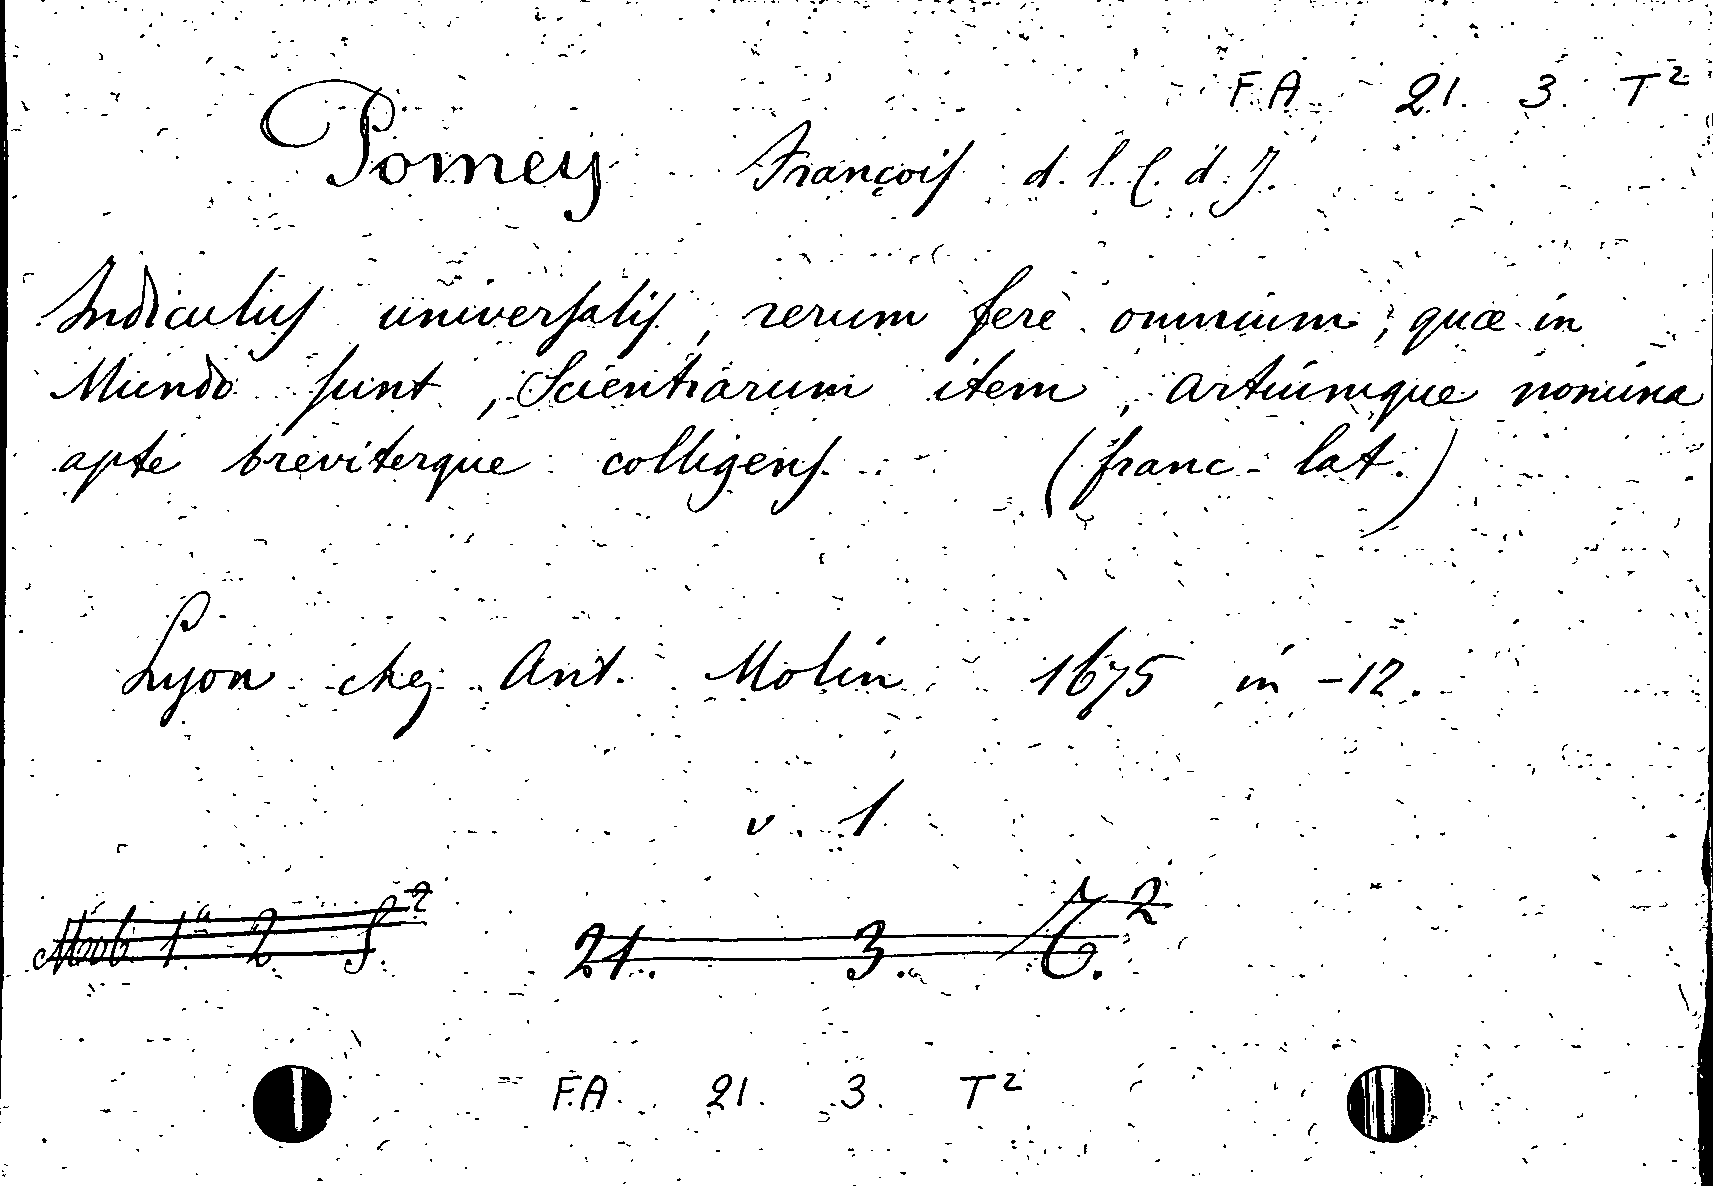 F.A. 21. 3. T²
Pomey François d. l. C. d. J.
Indiculus universalis, rerum ferè omnium, quæ in
Mundo sunt, Scientiarum item, artiumque nomina
apte breviterque colligens. (franc-lat.)
Lyon chez Ant. Molin 1675 in-12.
v. 1
Mob. 1ª 2 f.² 21. 3. T.²
F.A. 21. 3. T²